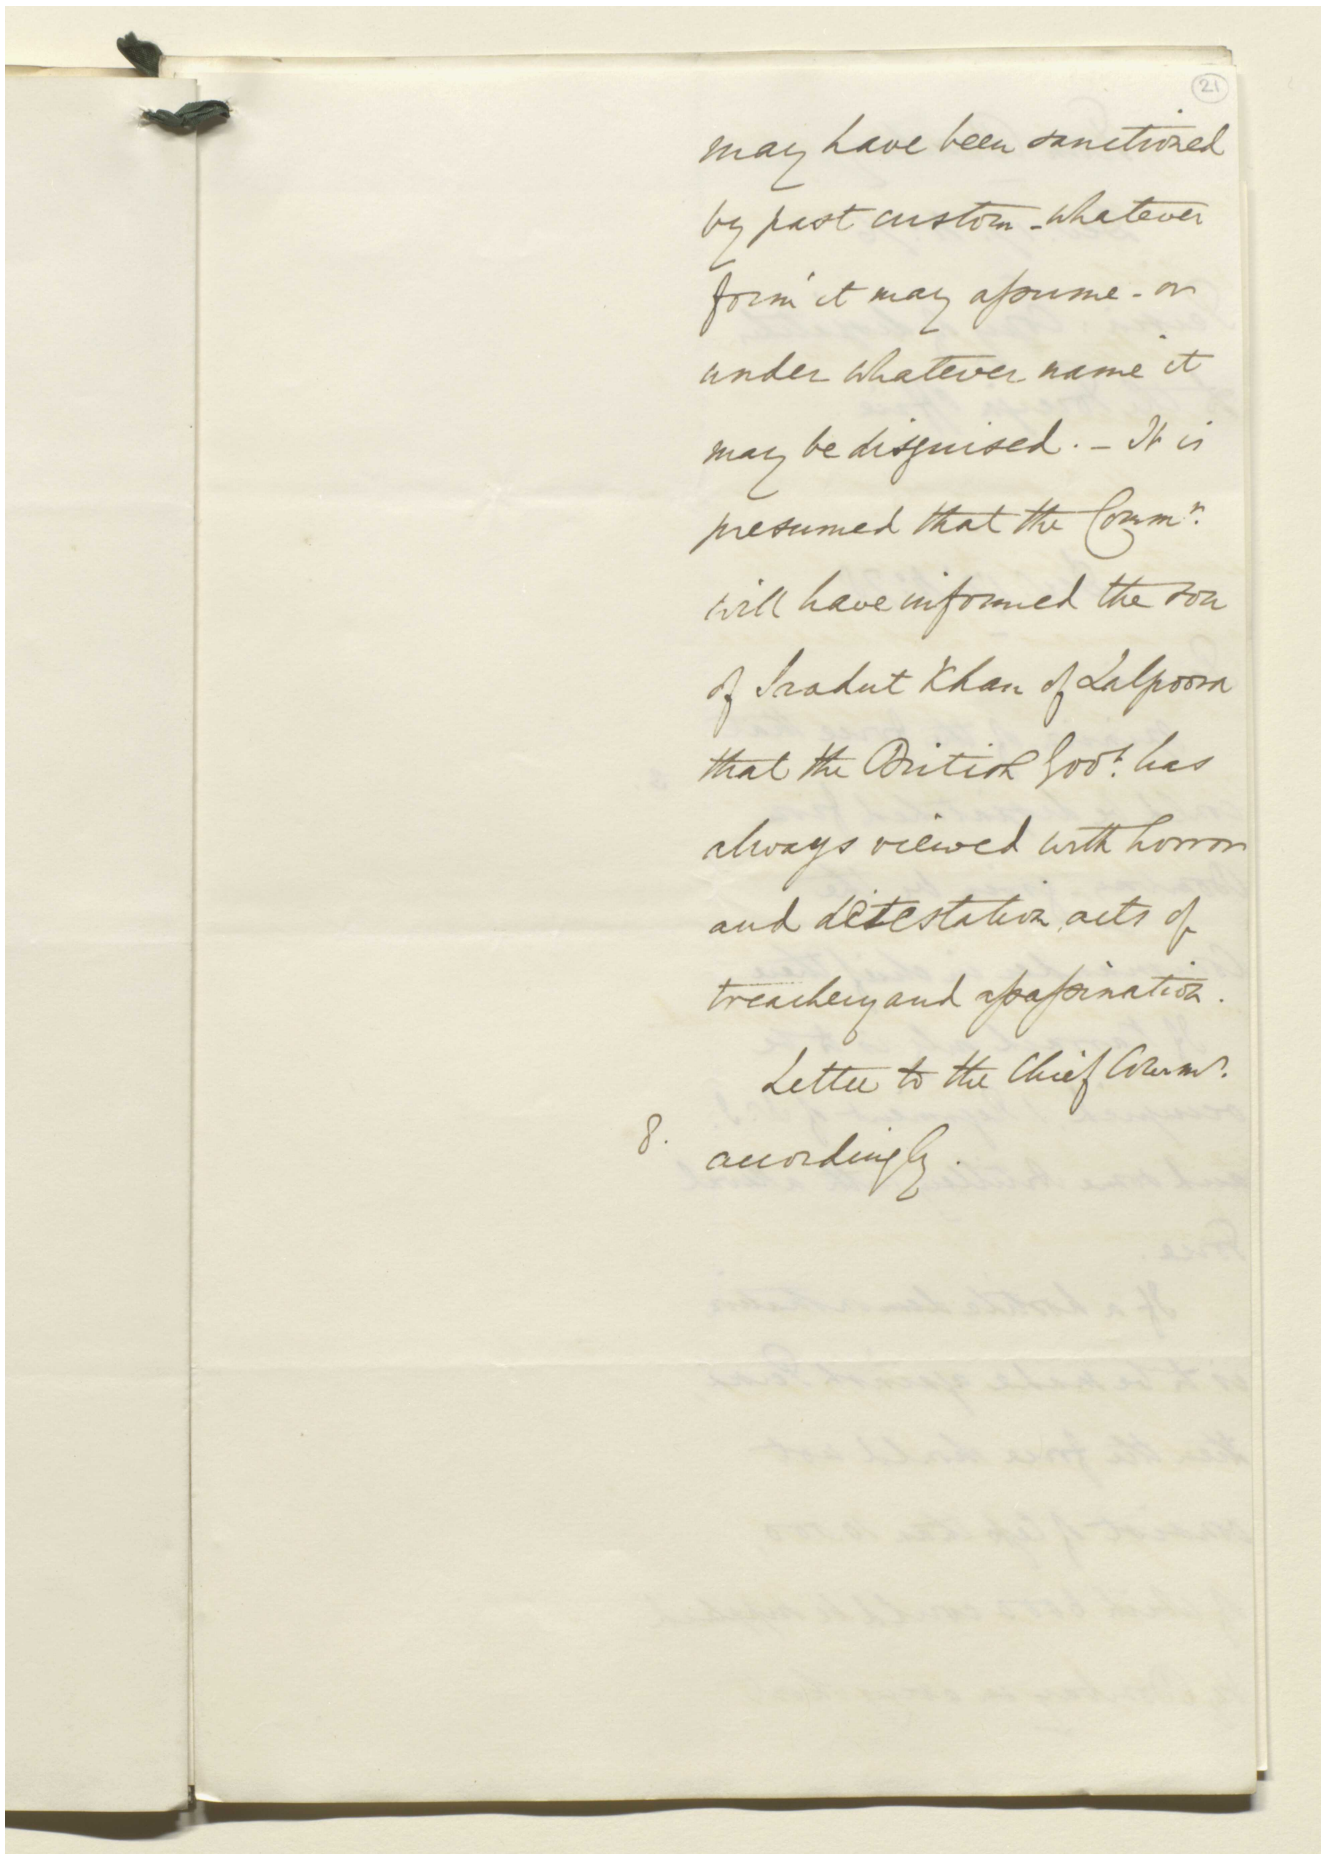 21
may have been sanctioned
by past custom - whatever
form it may assume - or
under whatever name it
may be disguised. - It is
presumed that the Commr.
will have informed the son
of Iradut Khan of Lalpoora
that the British Govt. has
always viewed with horror
and detestation acts of
treachery and assassination.
Letter to the Chief Commr.
8. accordingly.